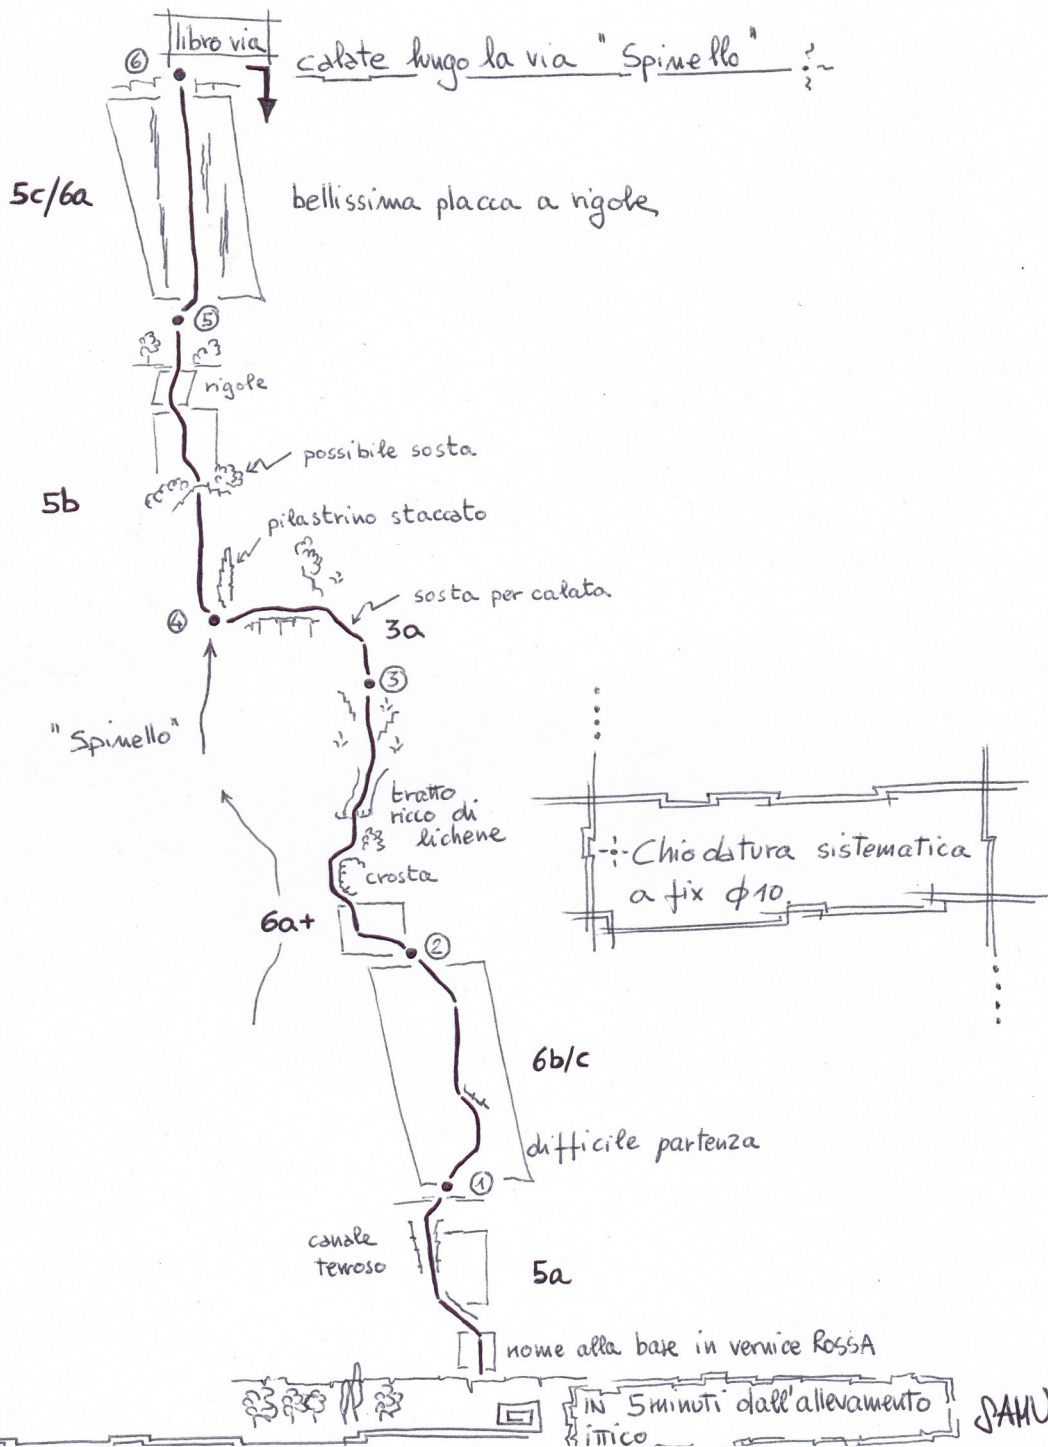 libro via
⑥
calate lungo la via "Spinello"
5c/6a
bellissima placca a rigole
⑤
rigole
possibile sosta
5b
pilastrino staccato
sosta per calata
④
3a
③
"Spinello"
tratto
ricco di
lichene
Chiodatura sistematica
a fix ϕ10
crosta
6a+
②
6b/c
difficile partenza
①
canale
terroso
5a
nome alla base in vernice ROSSA
in 5 minuti dall'allevamento
ittico
SAMU